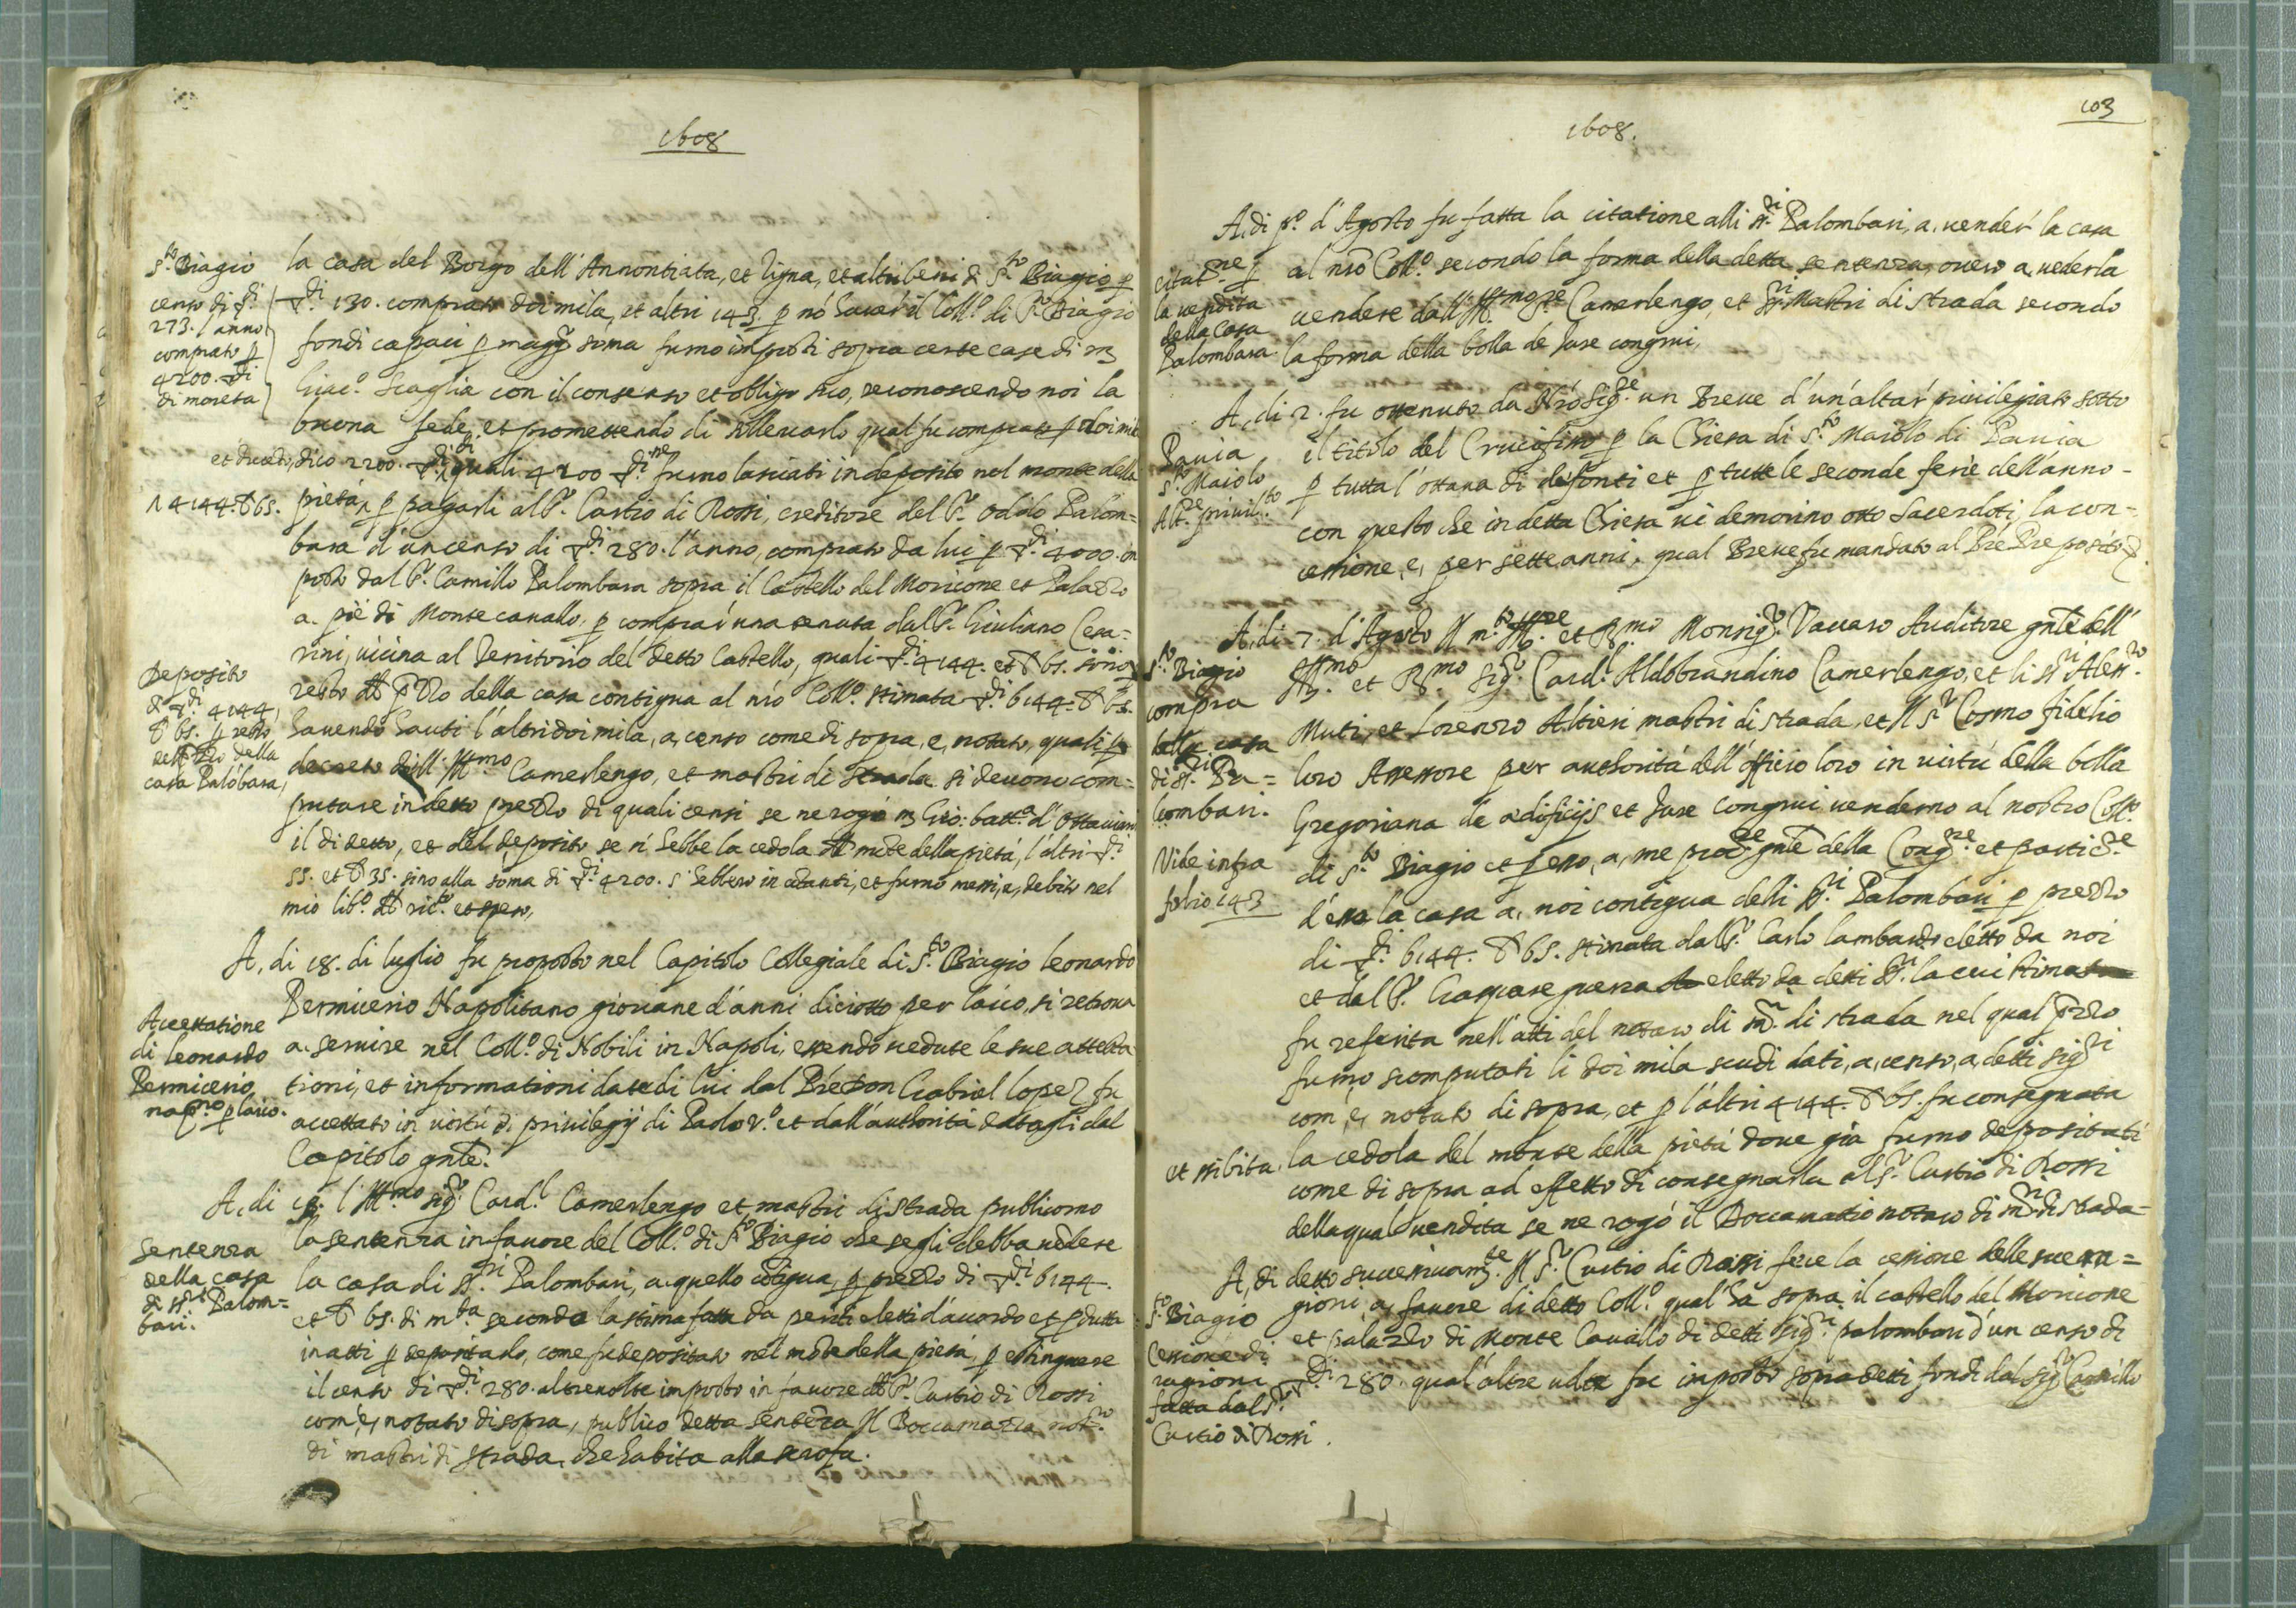 1608
s.to Biagio
censo di di
273. l'anno
comprato p
4200. di
di moneta
la casa del Borgo dell'Annontiata, et Vigna, et altri beni di S.to Biagio p
di 130. comprato doi mila, et altri 143. p nō haver il Coll.o di S.to Biagio
fondi capaci p magg.r soma furno imposti sopra certe case di m
Giac.o Scaglia con il consenso et obligo suo, reconoscendo noi la
buona fede, et promettendo di sollevarlo qual fu comprato p doi mila
et ducento, dico 2200. di quali 4200 di ne furno lasciati in deposito nel monte della
4144. 65.
pietà, p pagarli al S.r Curtio di Rossi, creditore del S.r Oddo Palom=
bara d'un censo di di 280. l'anno, comprato da lui p di 4000. im
posto dal S.r Camillo Palombara sopra il Castello del Moricone et Palazzo
a. piè di Monte cavallo, p comprar una tenuta dal S.r Giuliano Cesa=
rini, vicina al Territorio del detto Castello, quali di 4144. et 65. sono
Deposito
di di 4144,
65. p resto
del pzzo della
casa Palōbara,
resto del pzzo della casa contigua al nro Coll.o stimata di 6144. 65.
havendo hauti l'altri doi mila, a, censo come di sopra, e, notato, quali p
decreto dell'Ill.mo Camerlengo, et mastri di strada si devono com=
putare in detto prezzo di quali censi se ne rogò m Gio: batt.a d'Ottaviani
il di detto, et del deposito se n'hebbe la cedola del mōte della pietà, l'altri di
55. et 35. sino alla soma di di 4200. s'hebbero in contanti, et furno messi, a, debito nel
mio lib.o del ric.to et speso,
A, di 18. di luglio fu proposto nel Capitolo Collegiale di S.to Biagio Leonardo
Accettatione
di Leonardo
Permicerio
nap.no p laico.
Permicerio Napolitano giovane d'anni diciotto per laico, si retrova
a. servire nel Coll.o di Nobili in Napoli, essendo vedute le sue attesta
tioni, et informationi date di lui dal Pre Don Gabriel Lopez fu
accettato in virtù di privilegij di Paolo V.o et dall'authorità datagli dal
Capitolo gnle.
A, di 18. l'Ill.mo sig.r Card.l Camerlengo et mastri di strada publicorno
sentenza
della casa
di ss.ri Palom=
bari.
la sentenza in favore del Coll.o di S.to Biagio che segli debba vēdere
la casa di ss.ri Palombari, a. quello cōtigua, p prezzo di di 6144.
et 65. di m.ta secondo la stima fatta da periti eletti d'accordo et pdutta
in atti p depositarlo, come fu depositato nel mōte della pietà, p estinguere
il censo di di 280. altrevolte imposto in favore del S.r Curtio di Rossi
com'è, notato di sopra, publicò detta sentēza Il Boccamazza not.ro
di mastri di strada, che habita alla scrofa.
103
1608.
A, di p.o d'Agosto fu fatta la citatione alli ss.ri Palombari, a. vender la casa
citat.ne p
la vendita
della Casa
Palombara
al nro Coll.o secondo la forma della detta sentenza, overo a vederla
vendere dall'Ill.mo Sre Camerlengo, et ss.ri Mastri di strada secondo
la forma della bolla de Jure congrui,
A, di 2. fu ottenuto da Nro Sig.re un Breve d'un altar privilegiato sotto
Pavia
S.to Maiolo
Alt.re privil.to
il titolo del Crucifisso p la Chiesa di S.to Maiolo di Pavia
p tutta l'ottava di defonti et p tutte le seconde ferie dell'anno-
con questo che in detta Chiesa vi demorino otto Sacerdoti, la con=
cessione, e, per sette anni. qual Breve fu mandato al Pre Preposito
A, di 7. d'Agosto Il m.to Ill.re et R.mo Monsig.r Vaccaro Auditore gnle dell'
S.to Biagio
compra
della casa
di ss.ri Pa=
lombari.
Ill.mo et R.mo Sig.r Card.l Aldobrandino Camerlengo, et li ss.ri Aless.ro
Muti, et Lorenzo Altieri mastri di strada, et Il s.r Cosmo fidelio
loro Assessore per authorità dell'officio loro in virtù della bolla
Gregoriana de ædificijs et Jure congrui venderno al nostro Coll.o
Vide infra
folio 143
di S.to Biagio et p esso, a, me proc.re gnle della Cong.ne et partic.re
d'esso la casa a, noi contigua delli ss.ri Palombari p prezzo
di di 6144. 65. stimata dal S.r Carlo lambardo eletto da noi
et dal S.r Gaspare guerra eletto da detti ss.ri la cui stima
fu referita nell'atti del notaro di m.ri di strada nel qual pzzo
furno scomputati li doi mila scudi dati, a, censo, a, detti sig.ri
com'è, notato di sopra, et p l'altri 4144. 65. fu consegnata
et esibita
la cedola del monte della pietà dove già furno depositati
come di sopra ad effetto di consegnarla al S.r Curtio di Rossi
della qual vendita se ne rogò il Boccamattio notaro di m.ri di strada-
A, di detto successivam.te Il S.r Curtio di Rossi fece la cessione delle sue ra=
S.to Biagio
Cessione di
ragioni
fatta dal S.r
Curtio di Rossi.
gioni, a, favore di detto Coll.o qual'ha sopra il castello del Moricone
et palazzo di Monte Cavallo di detti sig.ri palombari d'un censo di
di 280. qual'altre volte fu imposto sopra detti fondi dal sig.r Camillo